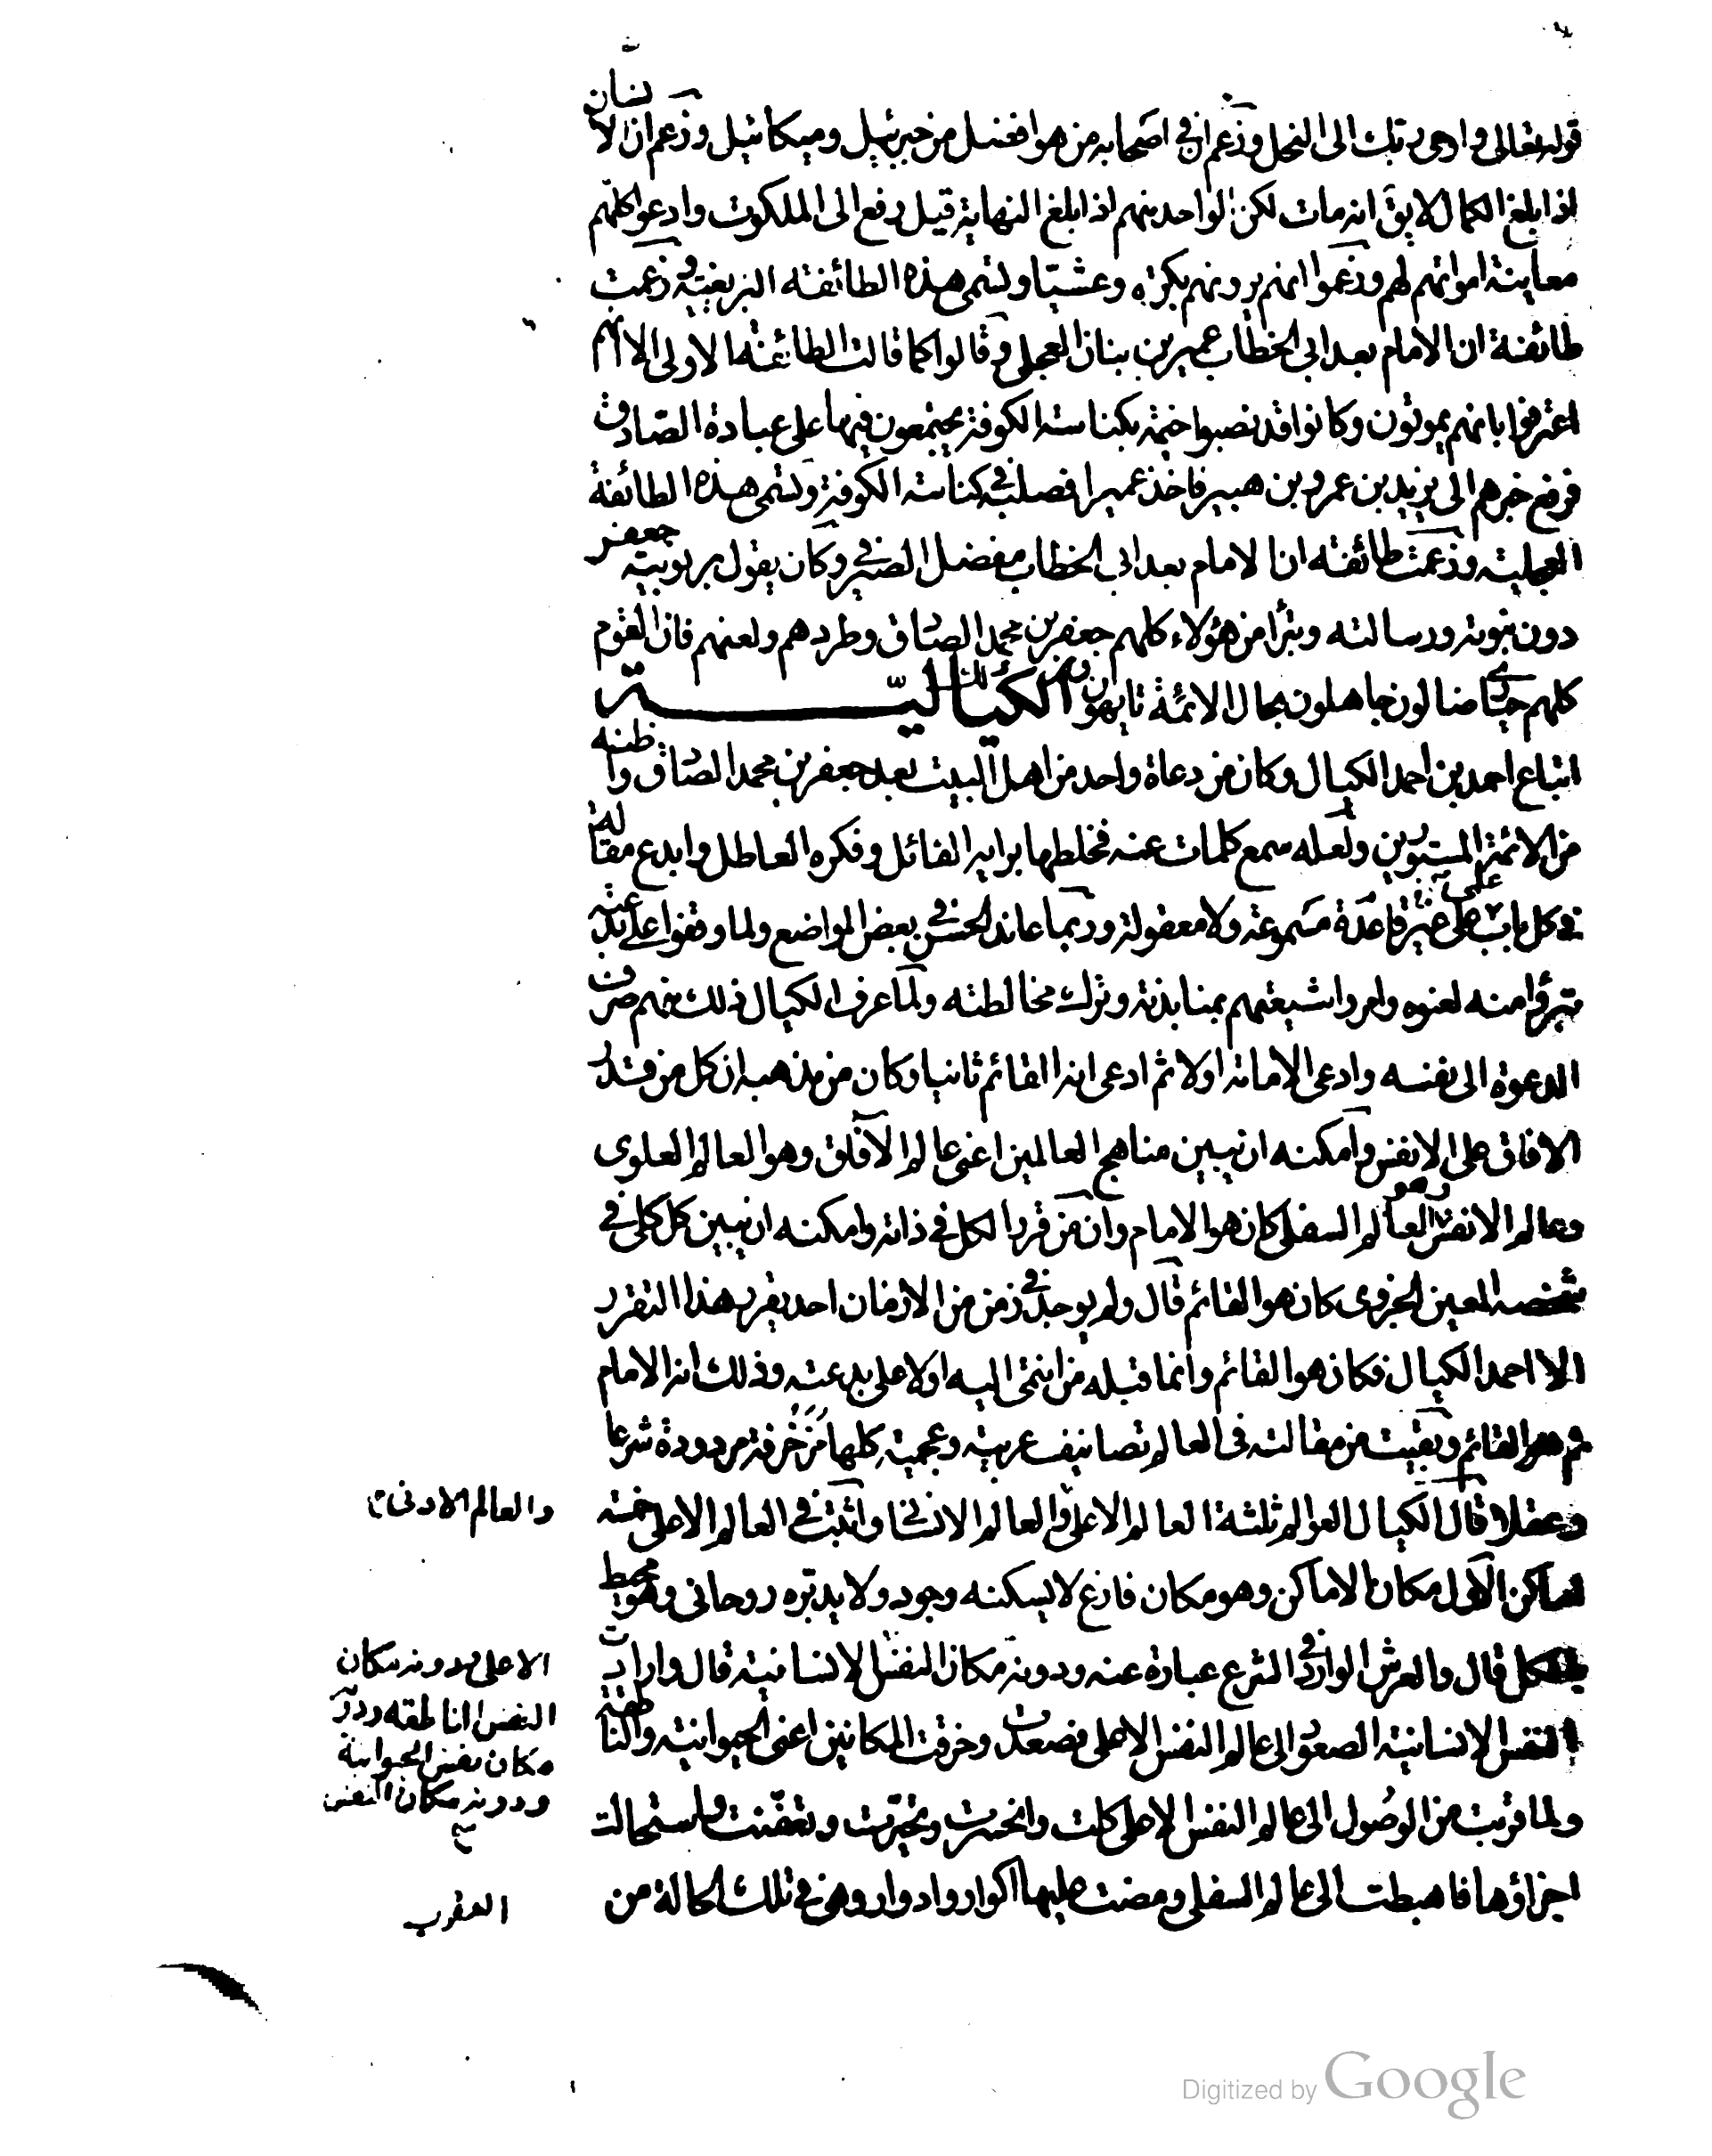 قوله تعالى واوحى ربك الى النحل وزعم ان في اصحابه من هو افضل من جبرئيل وميكائيل وزعم ان الانسان
اذا بلغ الكمال لا يق انه مات لكن الواحد منهم اذا بلغ النهاية قيل رفع الى الملكوت وادعوا كلهم
معاينة امواتهم لهم وزعموا انهم يرونهم بكرة وعشيا وتسمى هذه الطائفة البزيغية وزعمت
طائفة ان الامام بعد ابي الخطاب عمير بن بنان العجلي وقالوا كما قالت الطائفة الاولى الا انهم
اعترفوا بانهم يموتون وكانوا قد نصبوا خيمة بكناسة الكوفة يجتمعون فيها على عبادة الصادق
فرفع خبرهم الى يزيد بن عمرو بن هبيرة فاخذ عميرا فصلبه في كناسة الكوفة وتسمى هذه الطائفة
العجلية وزعمت طائفة ان الامام بعد ابي الخطاب مفضل الصيرفي وكان يقول بربوبية جعفر
دون نبوته ورسالته وتبرأ من هؤلاء كلهم جعفر بن محمد الصادق وطردهم ولعنهم فان القوم
كلهم حيارى ضالون جاهلون بحال الائمة تايهون ومن ذلك الكيالية
اتباع احمد بن احمد الكيال وكان من دعاة واحد من اهل البيت بعد جعفر بن محمد الصادق واظنه
من الائمة المستورين ولعله سمع كلمات عنه فخلطها برايه الفائل وفكره العاطل وابدع مقالة
في كل باب على غير قاعدة مسموعة ولا معقولة وربما عاند الحس في بعض المواضع ولما وقفوا على بدعته
تبرؤا منه لعنوه وامروا شيعتهم بمنابذته وترك مخالطته ولما عرف الكيال ذلك منهم صرف
الدعوة الى نفسه وادعى الامامة اولا ثم ادعى انه القائم ثانيا وكان من مذهبه ان كل من قدر
الافاق على الانفس وامكنه ان يبين مناهج العالمين اعني عالم الآفاق وهو العالم العلوى
وعالم الانفس وهو العالم السفلى كان هو الامام وان من قرر الكل في ذاته وامكنه ان يبين كل كلى في
شخصه المعين الجزوى كان هو القائم قال ولم يوجد في زمن من الازمان احد يقرر هذا التقرير
الا احمد الكيال فكان هو القائم وانما قبله من انتمى اليه اولا على بدعته وذلك انه الامام
ثم هو القائم وبقيت من مقالته في العالم تصانيف عربية وعجمية كلها مزخرفة مردودة شرعا
وعقلا قال الكيال العوالم ثلثة العالم الاعلى والعالم الانساني واثبت في العالم الاعلى خمسة
والعالم الادنى
اماكن الاول مكان الاماكن وهو مكان فارغ لا يسكنه وجود ولا يدبره روحاني وهو محيط
بالكل قال والعرش الوارد في الشرع عبارة عنه ودونه مكان النفس الانسانية قال وارادت
الاعلى ودونه مكان
النفس الناطقة ودونه
مكان نفس الحيوانية
ودونه مكان النفس
النفس الانسانية الصعود الى عالم النفس الاعلى فصعدت وخرقت المكانين اعني الحيوانية والناطقة
ولما قربت من الوصول الى عالم النفس الاعلى كلت وانحسرت وتحيرت وتعفنت واستحالت
اجزاؤها فاهبطت الى عالم السفلى ومضت عليها اكوار وادوار وهي في تلك الحالة من
العقرب
Digitized by Google